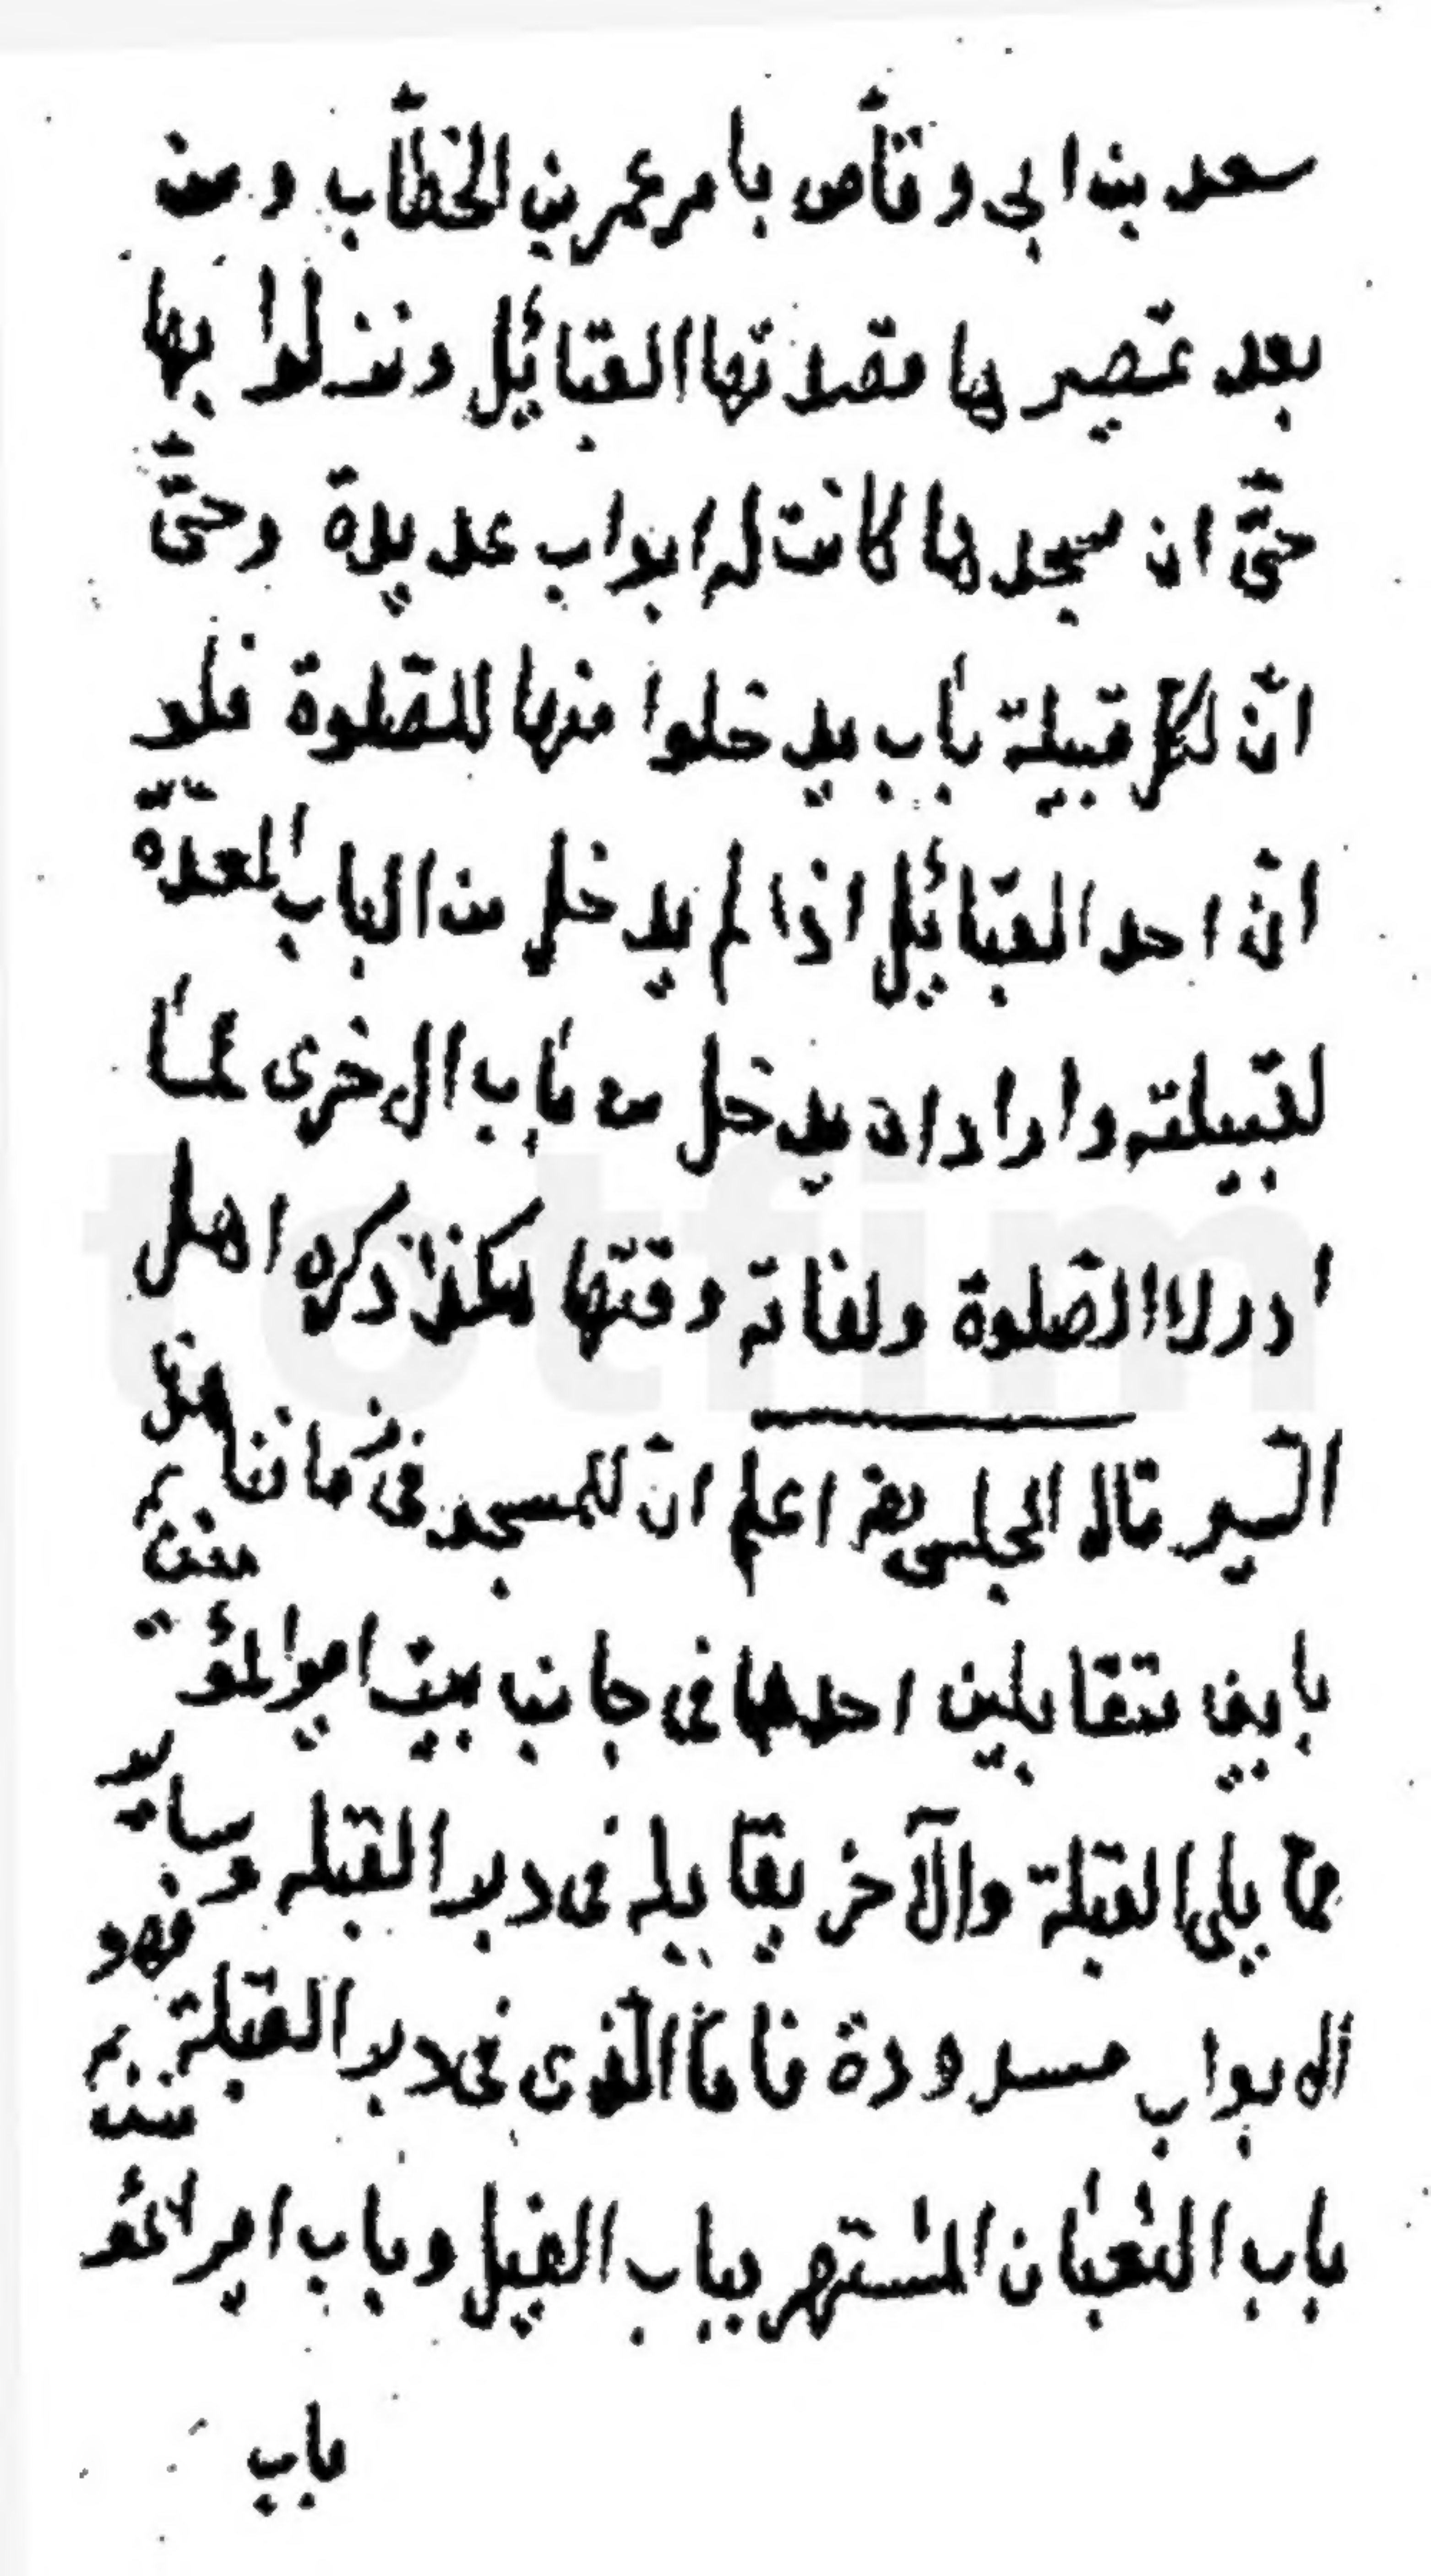 سعد بن ابى وقّاص بامر عمر بن الخطّاب ومن
بعد تمصيرها فقد اتها القبائيل ونزلوا بها
حتّى ان مسجدها كانت له ابواب عديدة وحتّى
انّ لكل قبيلة باب يدخلوا منها للصّلوة فلو
انّ احد القبائيل اذا لم يدخل من الباب المعدّة
لقبيلته واراد ان يدخل من باب الاخرى لما
ادرك الصّلوة ولفاته وقتها هكذا ذكره اهل
السّير قال المجلسى اعلم انّ للمسجد فى زماننا هذا
بابين متقابلين احدهما فى جانب بيت امير المؤمنين
ممّا يلى القبلة والآخر يقابله فى دبر القبله وساير
الابواب مسدودة فامّا الّذى فى دبر القبلة فهو
باب الثعبان المشتهر بباب الفيل وباب امير المؤمنين
باب